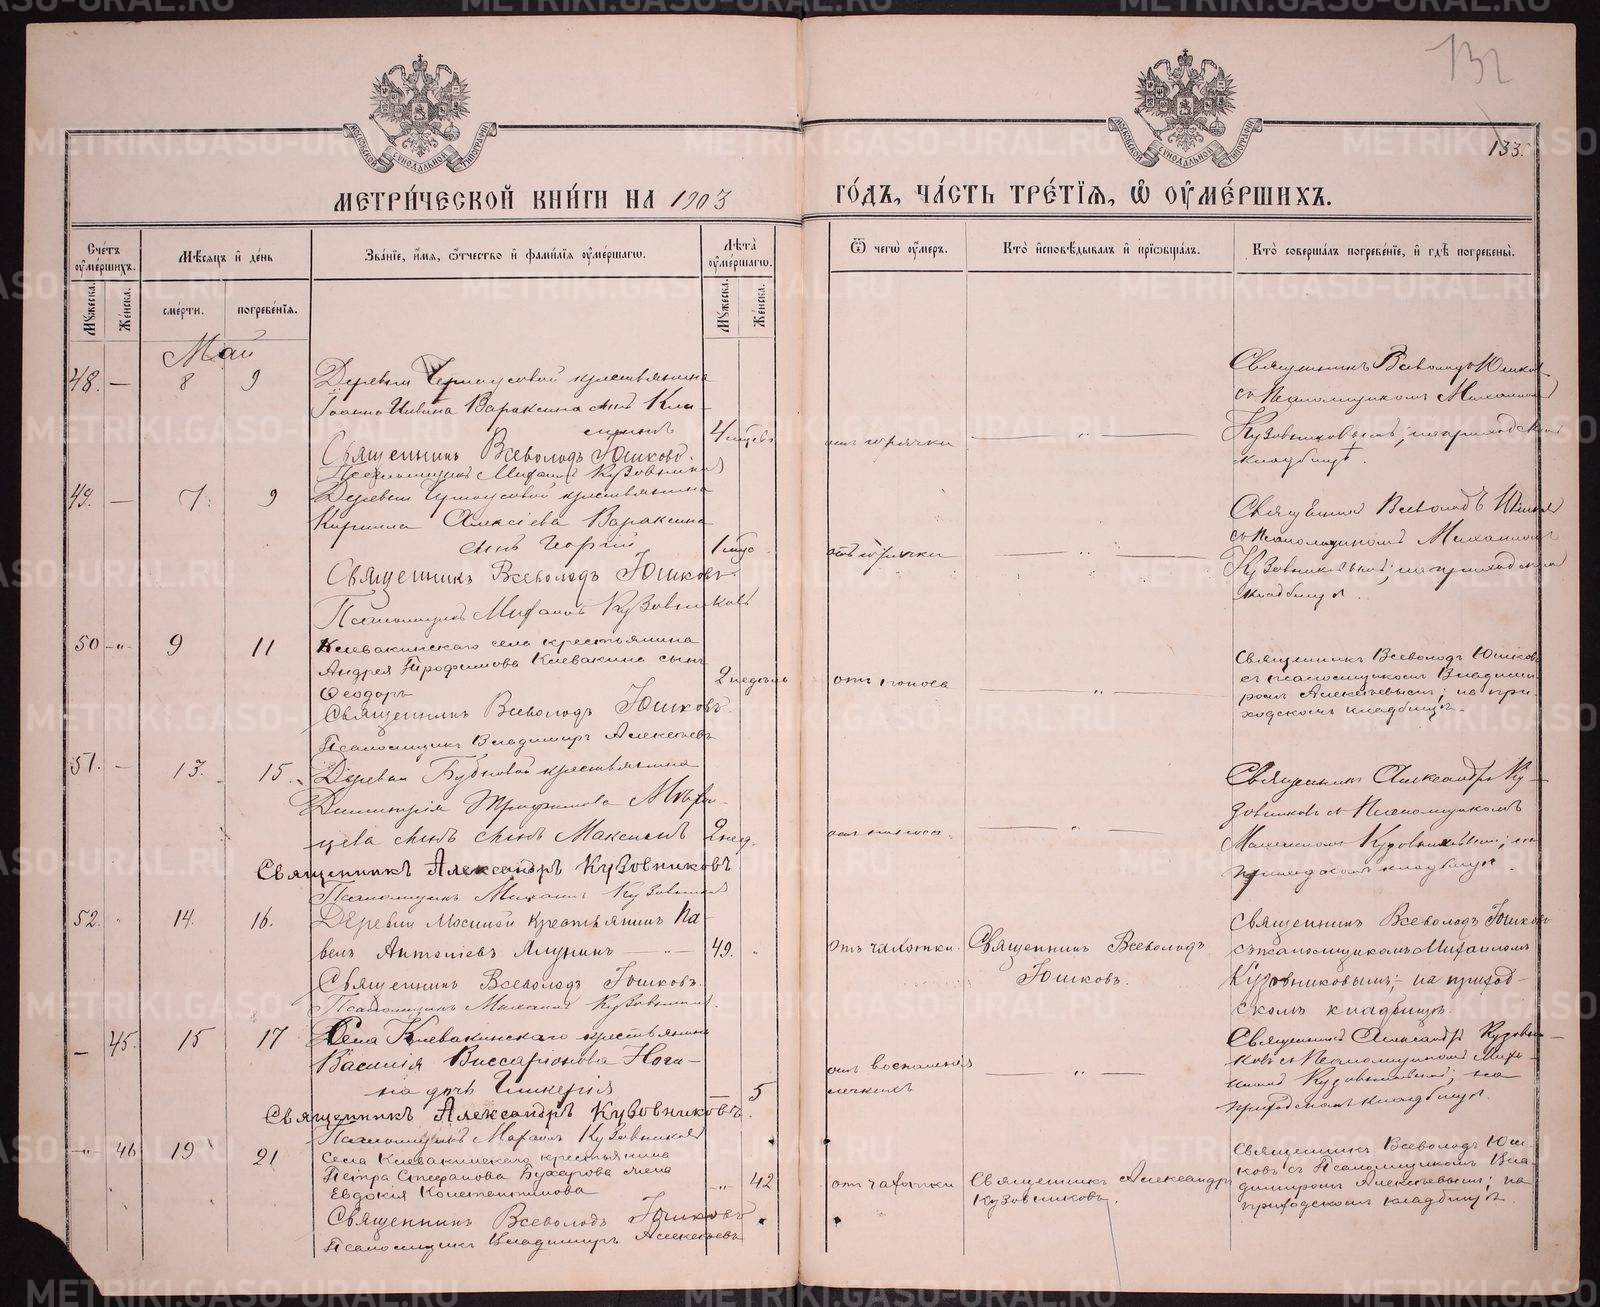 МЕТРИ́ЧЕСКОЙ КНИ́ГИ НА 1903
ГО́ДЪ, ЧА́СТЬ ТРЕ́ТЇѦ, Ѡ҆ ОУ҆МЕ́РШИХЪ.
132
133.
Сче́тъ оу҆ме́ршихъ.
Мѣ́сѧцъ и҆ де́нь
Зва́нїе, и҆́мѧ, ѻ҆́тчество и҆ фами́лїѧ оу҆ме́ршагѡ.
Лѣ́та оу҆ме́ршагѡ.
Ѿ чегѡ̀ оу҆́меръ.
Кто̀ и҆сповѣ́дывалъ и҆ прїѡбща́лъ.
Кто̀ соверша́лъ погребе́нїе, и҆ гдѣ̀ погребены̀.
Мꙋ́жеска.
Же́нска.
сме́рти.
погребе́нїѧ.
Мꙋ́жеска.
Же́нска.
Май
48. — 8 9
Деревни Черноусовой крестьянина
Вараксина сынъ
Священникъ Всеволодъ Юшковъ.
Псаломщикъ Михаилъ Кузовников
4
отъ горячки — „ —
Священникъ Всеволодъ Юшков
съ Псаломщикомъ Михаиломъ
Кузовниковымъ; на приходском
кладбищѣ.
49. — 7. 9
Деревни Черноусовой крестьянина
Кирилла Алексіева Вараксина
сынъ Георгій
Священникъ Всеволодъ Юшковъ.
Псаломщикъ Михаилъ Кузовниковъ
1
отъ горячки — „ —
Священникъ Всеволодъ Юшков
съ Псаломщикомъ Михаиломъ
Кузовниковымъ; на приходском
кладбищѣ.
50 -„- 9 11
Клевакинскаго села крестьянина
Андрея Трофимова Клевакина сынъ
Ѳеодоръ
Священникъ Всеволодъ Юшковъ.
Псаломщикъ Владимиръ Алексѣевъ
2 недѣли
отъ поноса — „ —
Священникъ Всеволодъ Юшковъ
съ псаломщикомъ Владими-
ромъ Алексѣевымъ; на при-
ходскомъ кладбищѣ.
51. — 13. 15.
Деревни Бубновой крестьянина
Димитрія Трофимова
цева сынъ сынъ Максимъ
Священникъ Александръ Кузовниковъ
Псаломщикъ Михаилъ Кузовников
2 нед.
отъ поноса. — „ —
Священникъ Александръ Ку-
зовниковъ съ Псаломщикомъ
Михаиломъ Кузовниковымъ; на
приходскомъ кладбищѣ.
52. „ 14. 16.
Деревни Мосиной крестьянинъ Па-
велъ Антоніевъ Ялунинъ — „ —
Священникъ Всеволодъ Юшковъ.
Псаломщикъ Михаилъ Кузовников.
49. „
Отъ чахотки.
Священникъ Всеволодъ
Юшковъ.
Священникъ Всеволодъ Юшковъ
съ псаломщикомъ Михаиломъ
Кузовниковымъ; на приход-
скомъ кладбищѣ.
— 45. 15 17
Села Клевакинскаго крестьянина
Василія Виссаріонова Ноги-
на дочь Гликерія
Священникъ Александръ Кузовниковъ.
Псаломщикъ Михаилъ Кузовников
— 5
отъ воспаленія
легкихъ
— „ —
Священникъ Александръ Кузовни-
ковъ съ Псаломщикомъ Миха-
иломъ Кузовниковымъ; на
приходскомъ кладбищѣ.
-„- 46 19 21
Села Клевакинскаго крестьянина
Петра Стефанова Бухарова жена
Евдокія Константинова
Священникъ Всеволодъ Юшковъ
Псаломщикъ Владимиръ Алексѣевъ
-„- 42
отъ чахотки
Священникъ Александръ
Кузовниковъ.
Священникъ Всеволодъ Юш-
ковъ съ Псаломщикомъ Вла-
димиромъ Алексѣевымъ; на
приходскомъ кладбищѣ.
METRIKI.GASO-URAL.RU